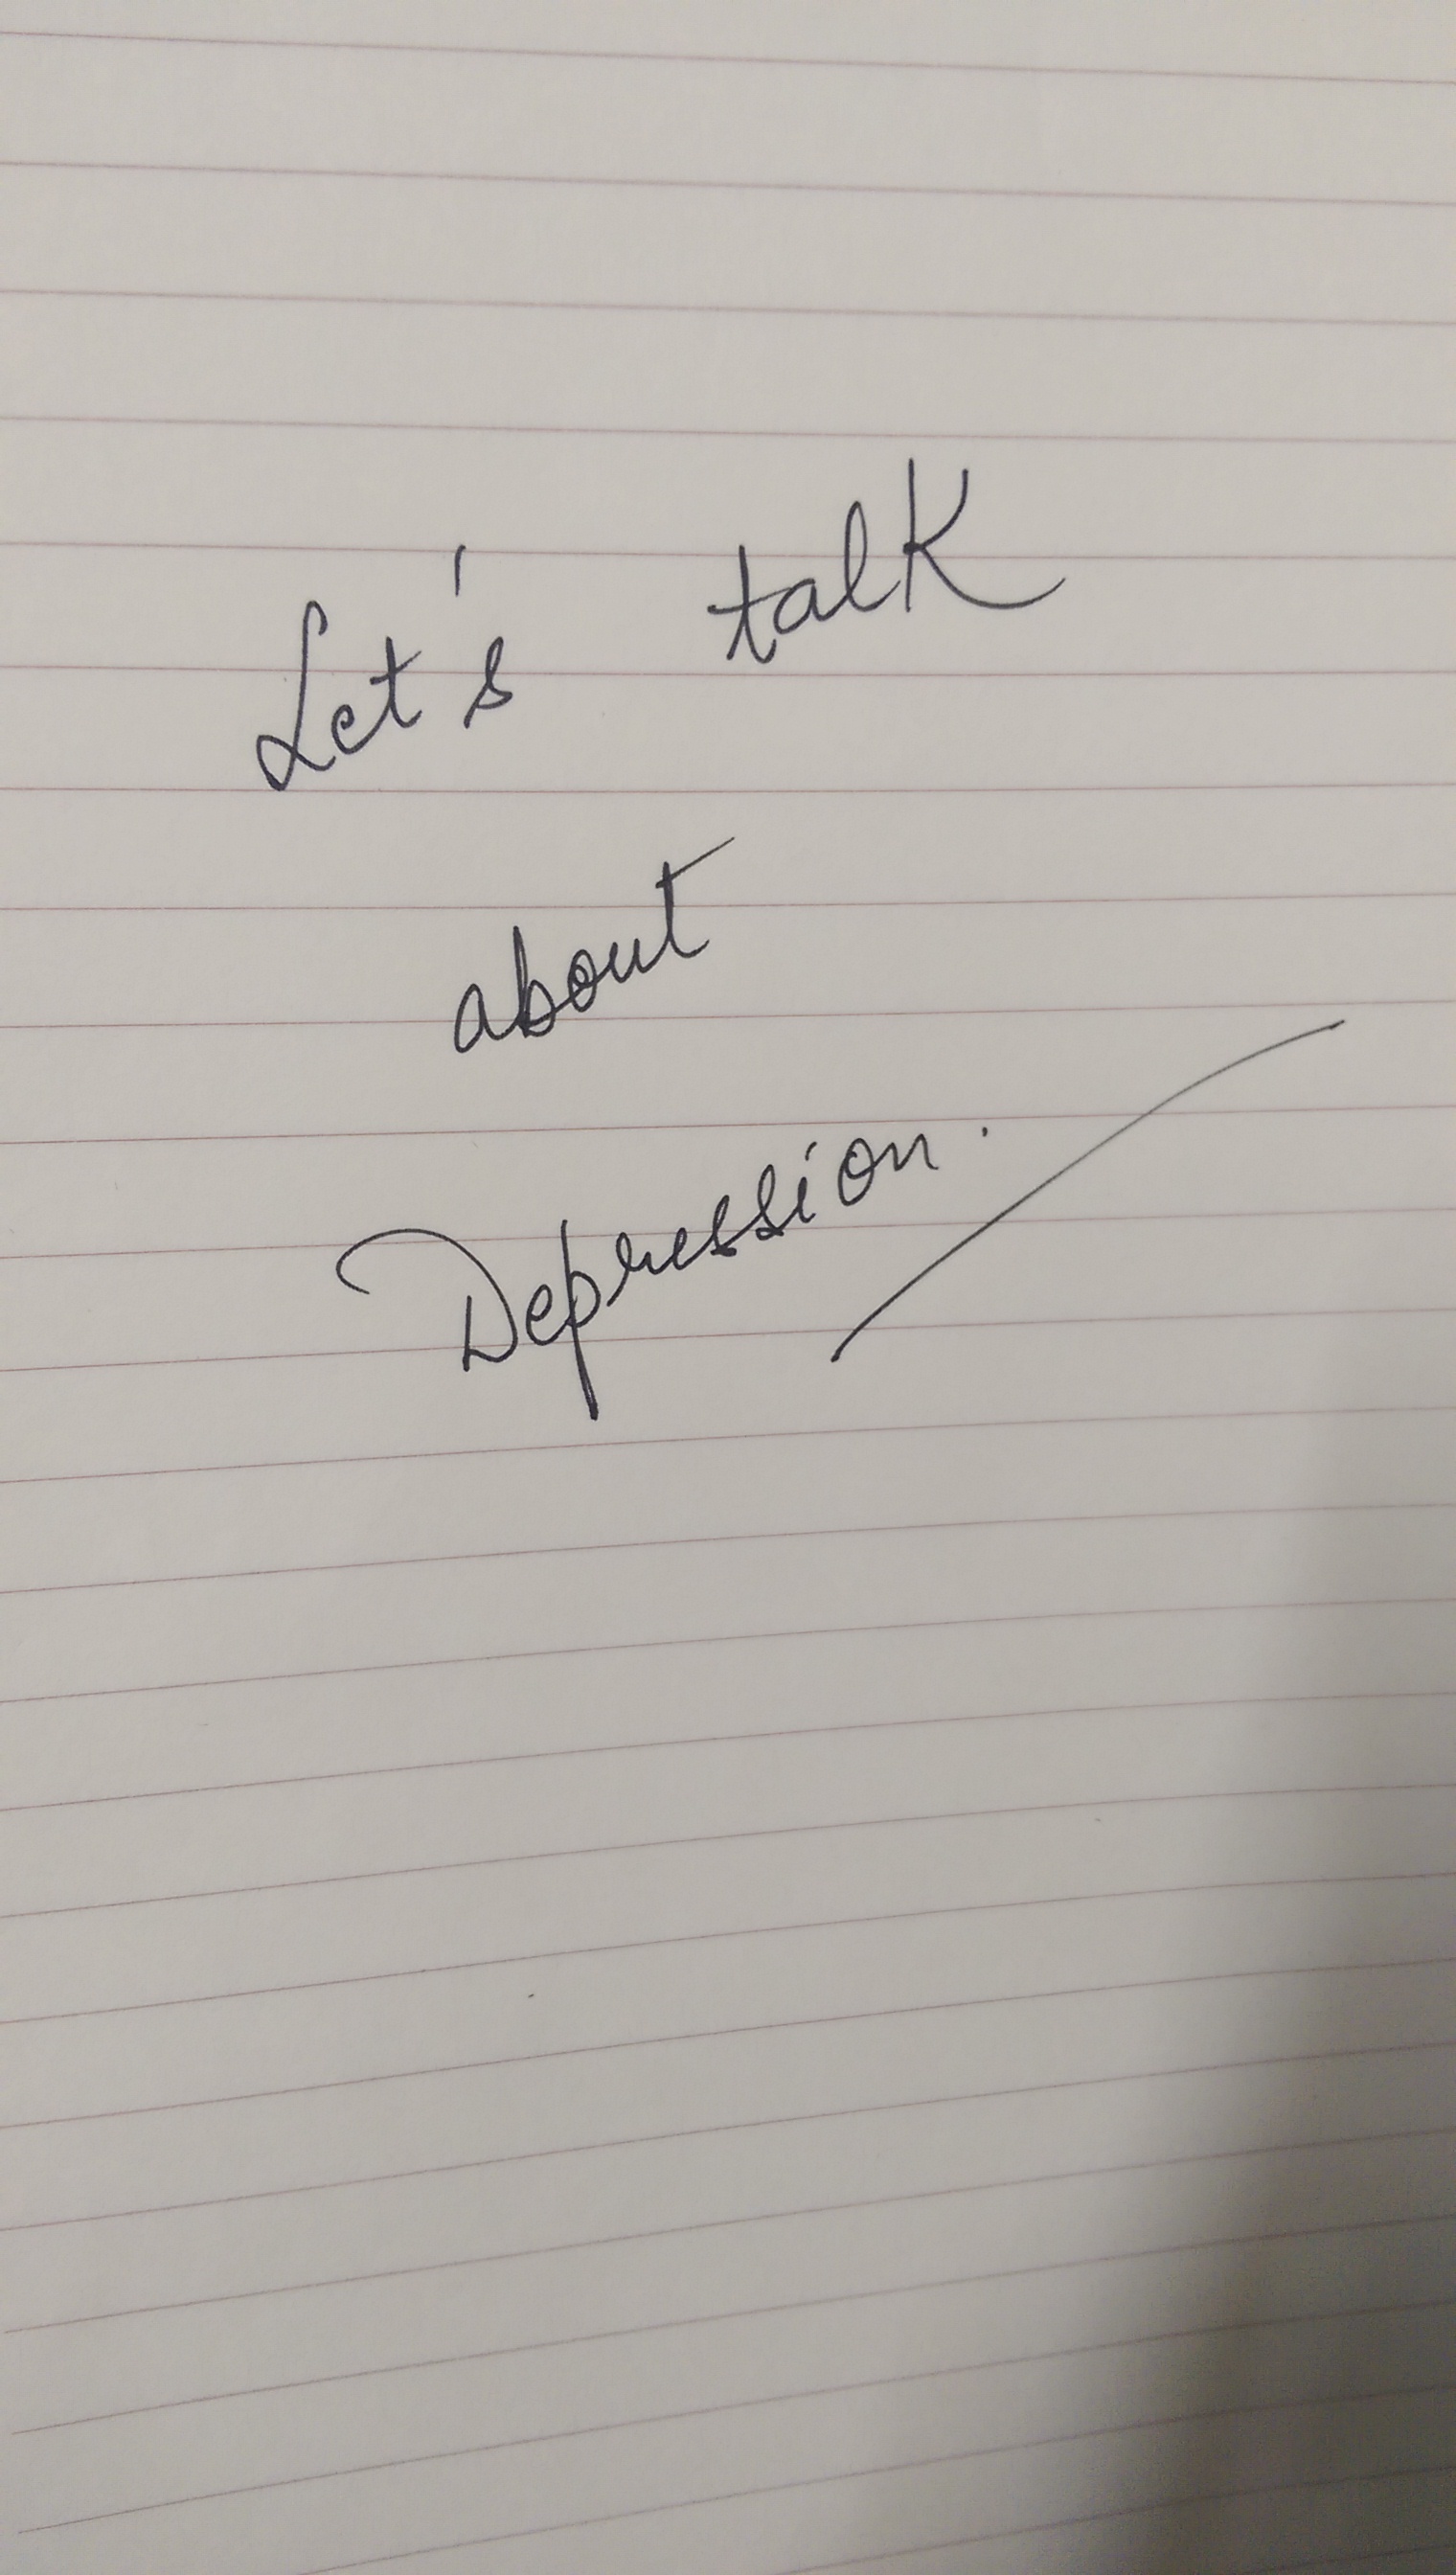 Let's talk
about
Depression.